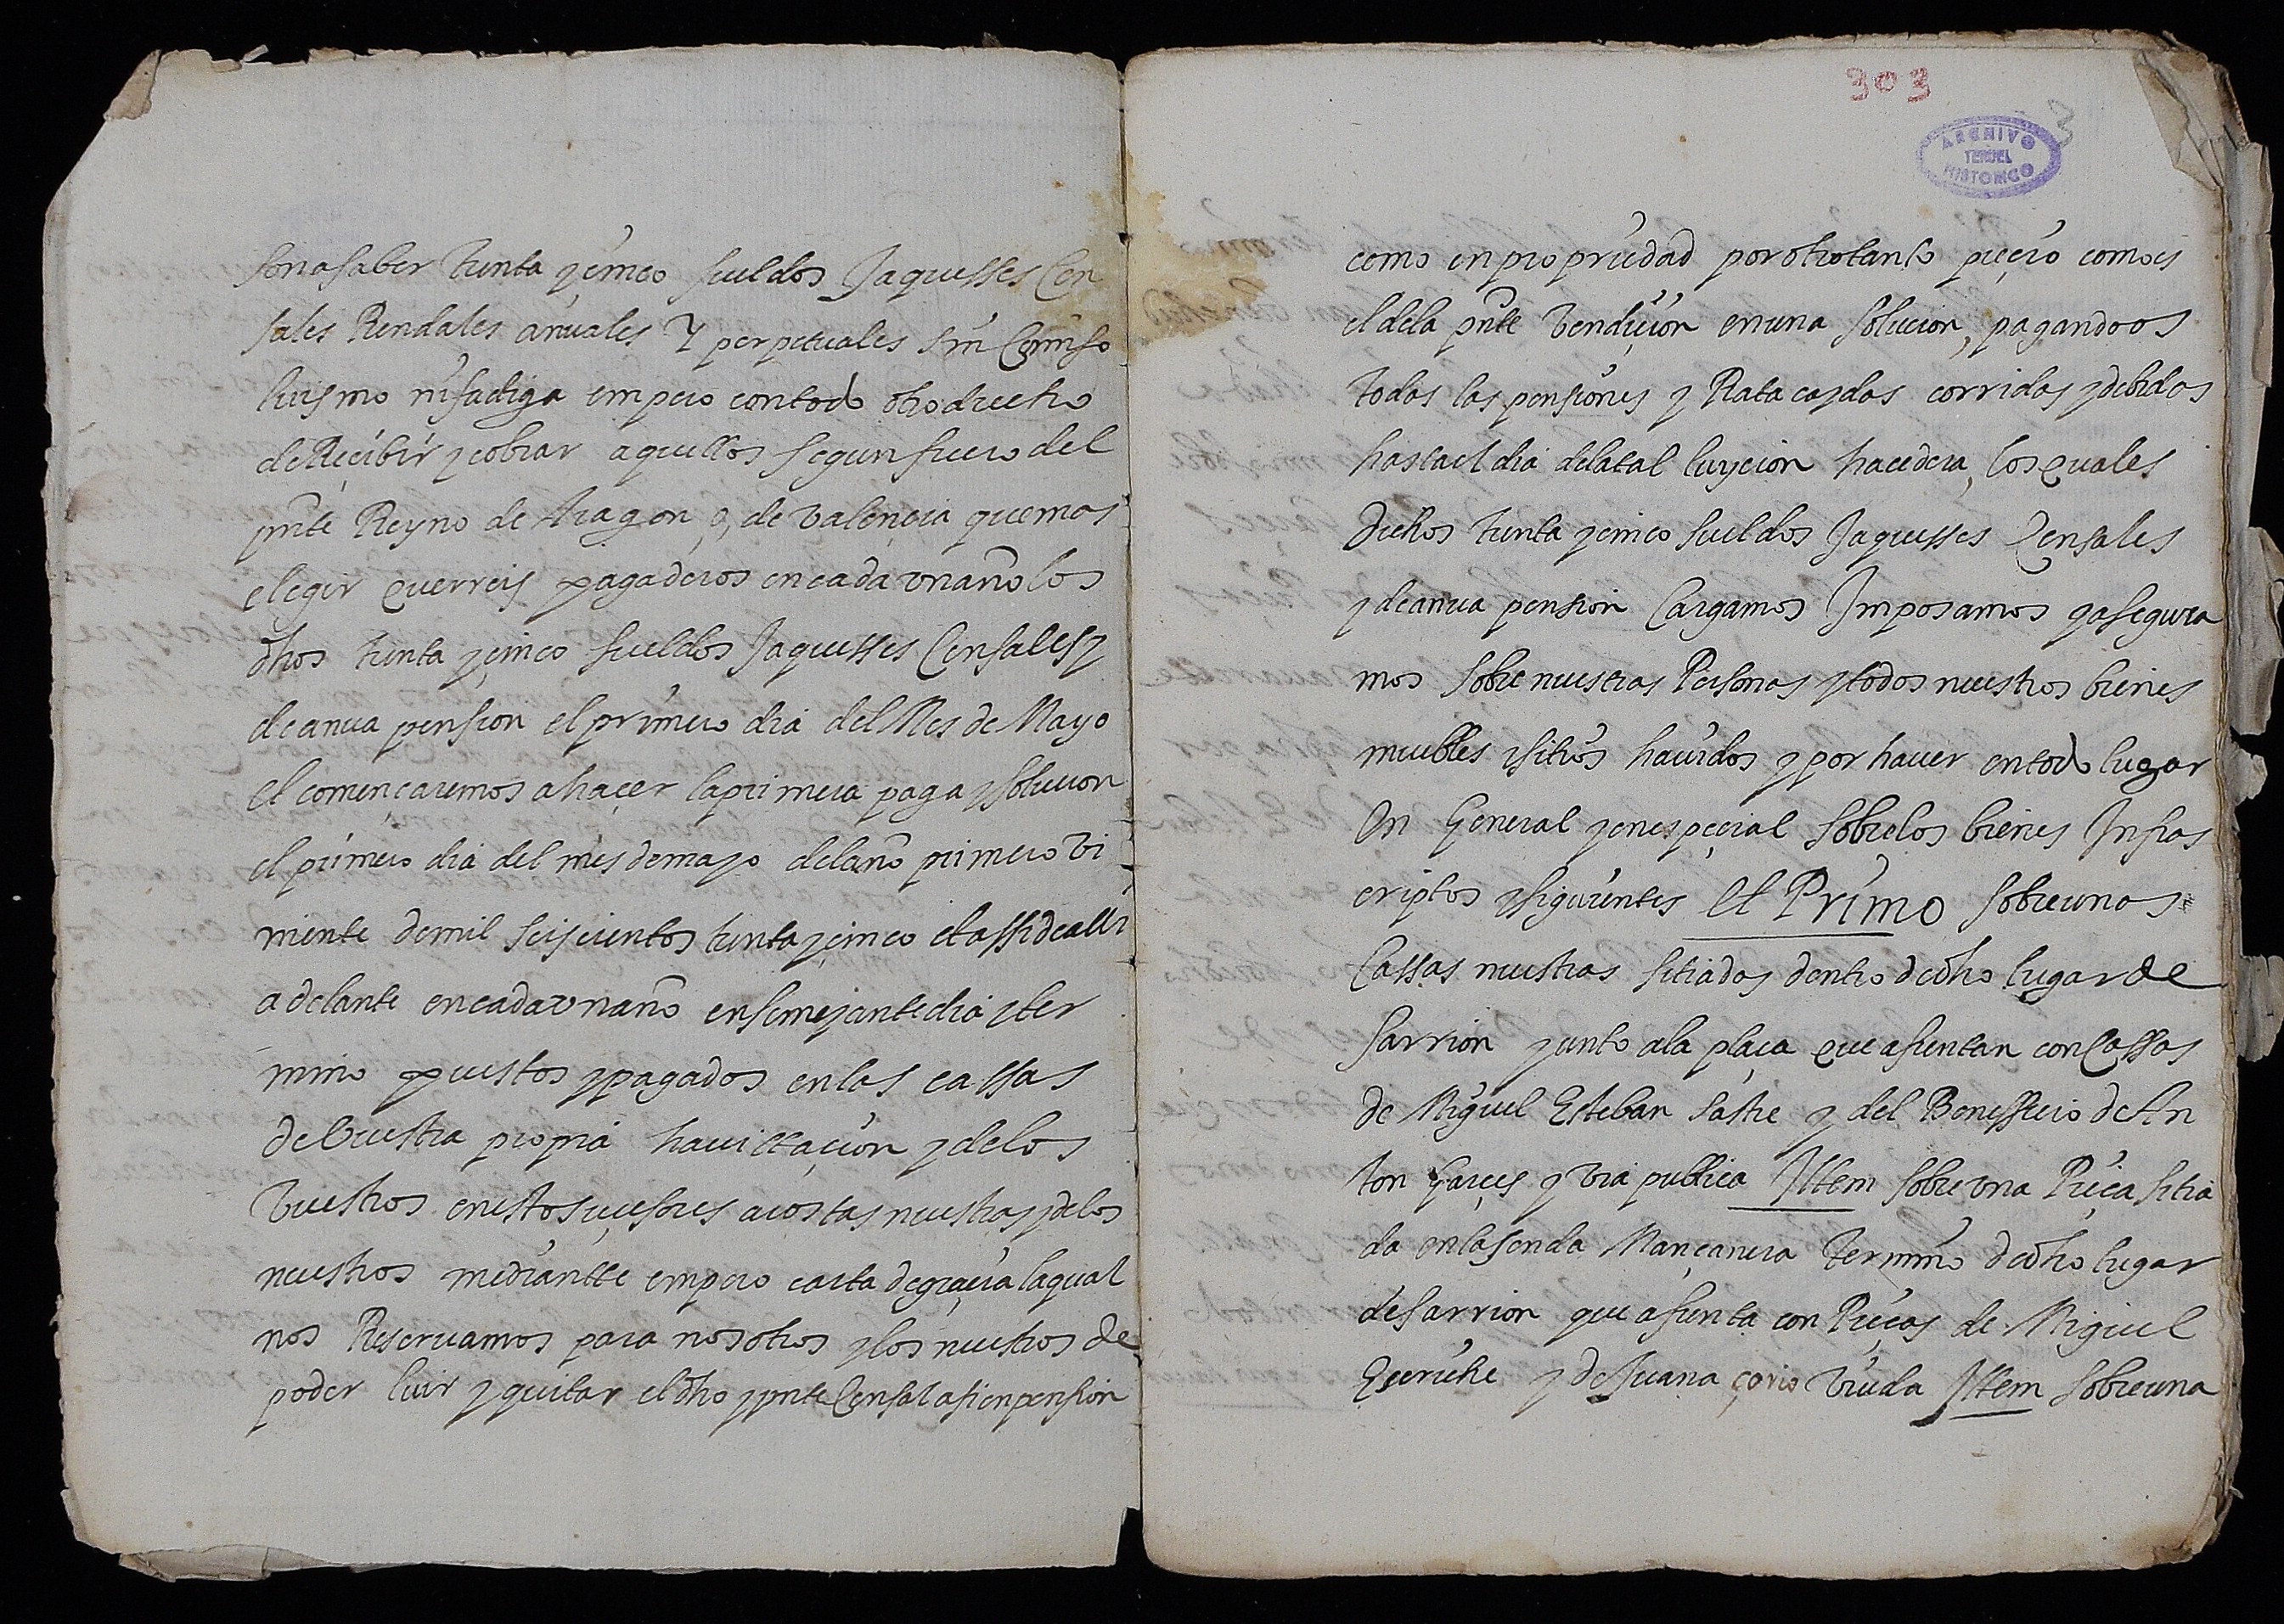 son a saber trenta y çinco sueldos Jaquesses Cen
sales Rendales añuales Y perpetuales sin Comisso
luismo ni fadiga empero con todo otro drecho
de Reçibir y cobrar aquellos segun fuero del
pnte Reyno de Aragon o, de valençia que mas
elegir querreis pagaderos en cada vn año los
dhos trenta y çinco sueldos Jaquesses Censales y
de anua pension el primero dia del Mes de Mayo
et començaremos a haçer la primera paga y solucion
el primero dia del mes de mayo del año primero vi
niente de mil seiscientos trenta y çinco et assi de alli
adelante en cada vn año en semejante dia y ter
mino puestos y pagados en las cassas
de Vuestra propia havitaçion y de los
Vuestros en esto suçesores a costas nuestras y de los
nuestros mediantte empero carta de graçia la qual
nos Reseruamos para nosotros y los nuestros de
poder luir y quitar el dho y pnte Censal asi en pension
303
3
ARCHIVO
TERUEL
HISTORICO
como en propriedad por otro tanto preçio como es
el de la pnte Vendiçion en una soluçion, pagandoos
todas las pensiones y Rata caydas corridas y debidas
hasta el dia de la tal luycion hacedera, los quales
dichos trenta y cinco sueldos Jaquesses Censales
y de anua pension Cargamos Imposamos y asegura
mos sobre nuestras Personas y todos nuestros bienes
muebles y sitios hauidos y por hauer en todo lugar
En General y en espeçial sobre los bienes Infras
criptos y siguientes Et Primo sobre unas
Cassas nuestras sitiadas dentro de dho lugar de
Sarrion junto a la plaça que afrentan con Cassas
de Miguel Esteban Sastre y del Benefficio de An
ton Garçes y via publica Ittem sobre vna Pieça sitia
da en la senda Mançanera Termino de dho lugar
de Sarrion que afrenta con Pieças de Miguel
Escriche y de Juana çorio Viuda Ittem sobre una